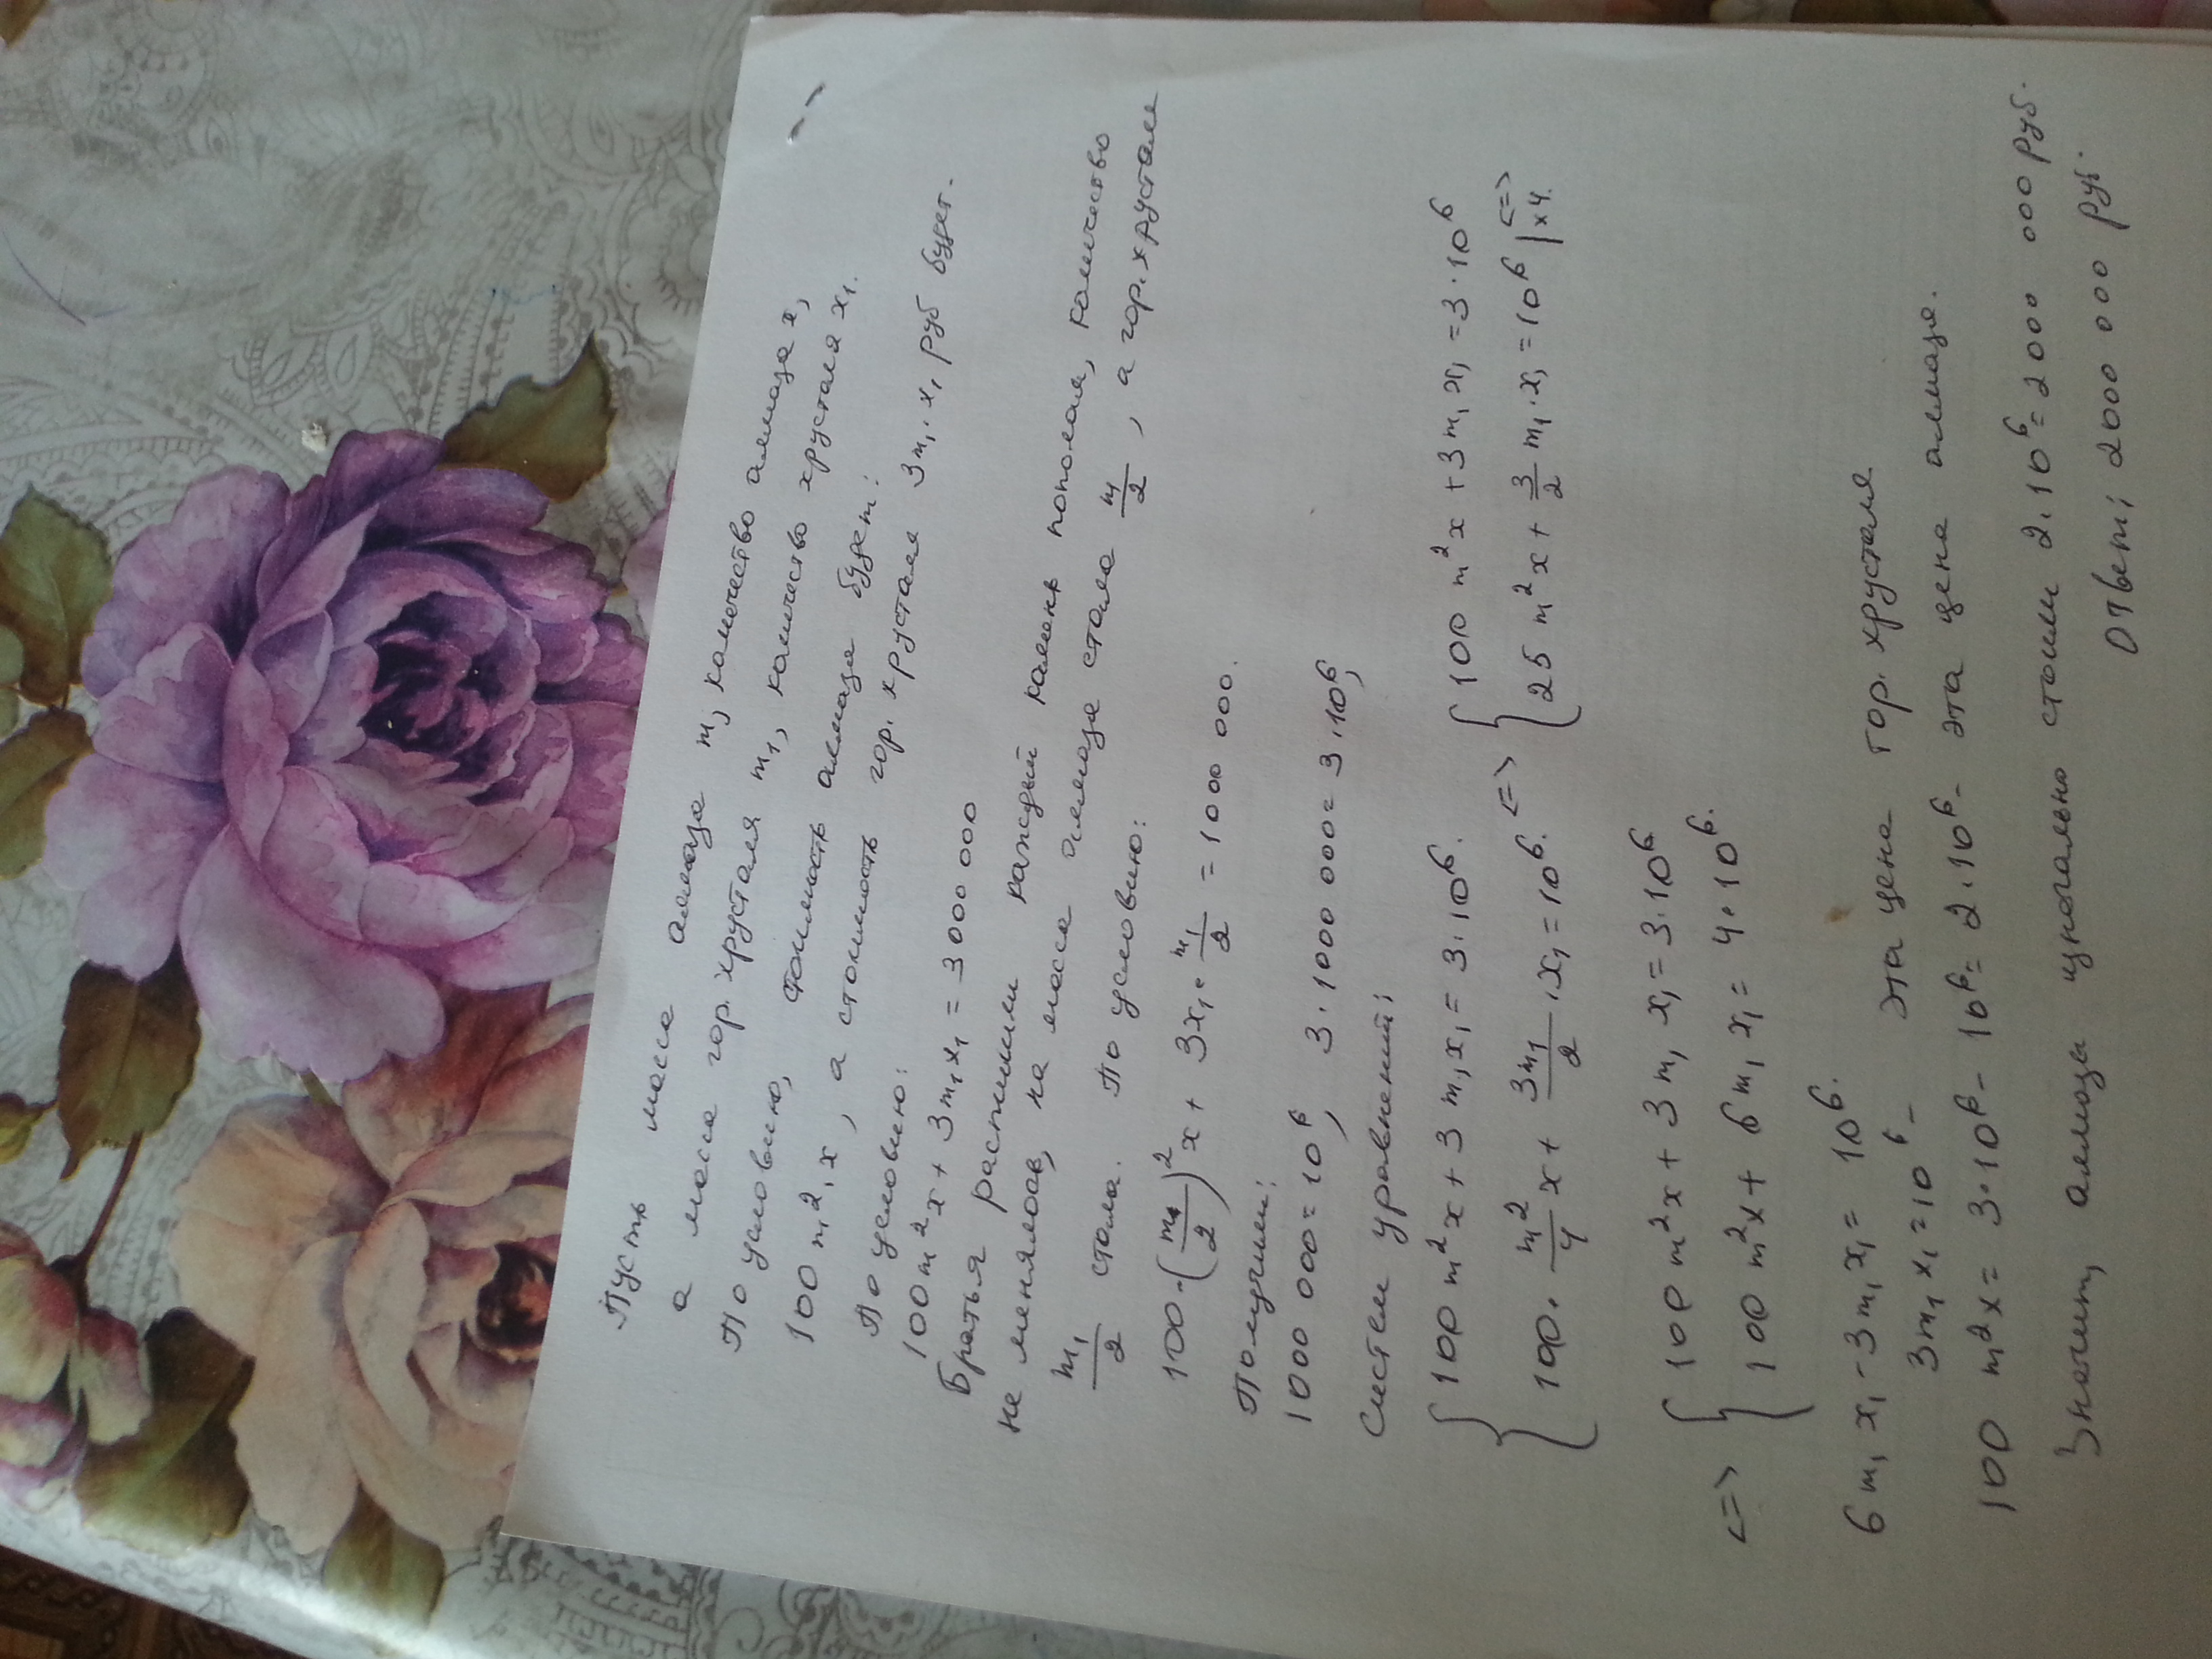 Пусть масса алмаза m, количество алмаза x,
а масса гор. хрусталя m₁, количество хрусталя x₁.
По условию, стоимость алмаза будет:
100 m²·x, а стоимость гор. хрусталя 3m₁·x₁ руб будет.
По условию:
100m²x + 3m₁x₁ = 3 000 000
Братья распилили каждый камень пополам, количество
не менялось, но масса алмаза стала m/2, а гор. хрусталя
m₁/2 стала. По условию:
100·(m/2)²x + 3x₁·m₁/2 = 1000 000.
Получили:
1000 000 = 10⁶, 3·1000 000 = 3·10⁶,
Систем уравнений:
{100 m²x + 3 m₁x₁ = 3·10⁶. {100 m²x + 3m₁x₁ = 3·10⁶
{100·m²/4 x + 3m₁/2·x₁ = 10⁶. <=> {25 m²x + 3/2 m₁·x₁ = 10⁶ |x4. <=>
<=> {100 m²x + 3m₁x₁ = 3·10⁶
{100 m²x + 6m₁x₁ = 4·10⁶.
6m₁x₁ - 3m₁x₁ = 10⁶.
3m₁x₁ = 10⁶ - эта цена гор. хрусталя
100 m²x = 3·10⁶ - 10⁶ = 2·10⁶ - эта цена алмаза.
Значит, алмазы изначально стоили 2·10⁶ = 2000 000 руб.
Ответ: 2000 000 руб.